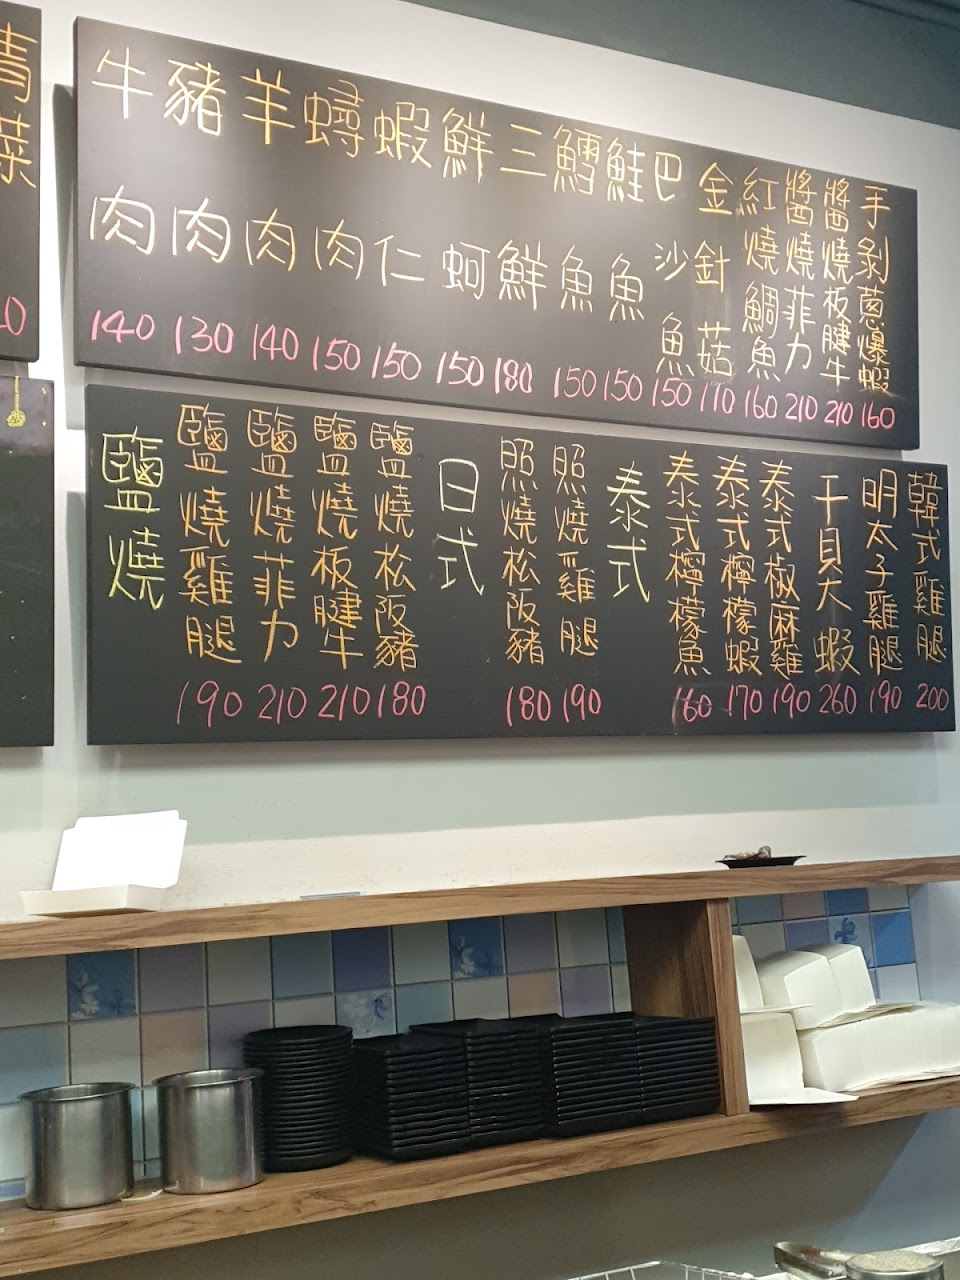 青菜
牛肉 140
豬肉 130
羊肉 140
蟳肉 150
蝦仁 150
鮮蚵 150
三鮮 180
鱈魚 150
鮭魚 150
巴沙魚 150
金針菇 110
紅燒鯛魚 160
醬燒菲力 210
醬燒板腱牛 210
手剝蔥爆蝦 160
鹽燒
鹽燒雞腿 190
鹽燒菲力 210
鹽燒板腱牛 210
鹽燒松阪豬 180
日式
照燒松阪豬 180
照燒雞腿 190
泰式
泰式檸檬魚 160
泰式檸檬蝦 170
泰式椒麻雞 190
干貝大蝦 260
明太子雞腿 190
韓式雞腿 200